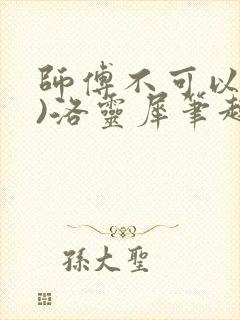 師傅不可以
)洛靈犀筆趣
孫大聖